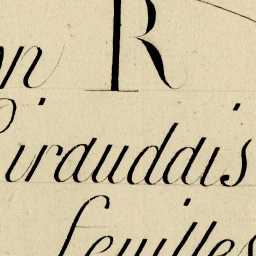 on R
Girauddis
feuilles